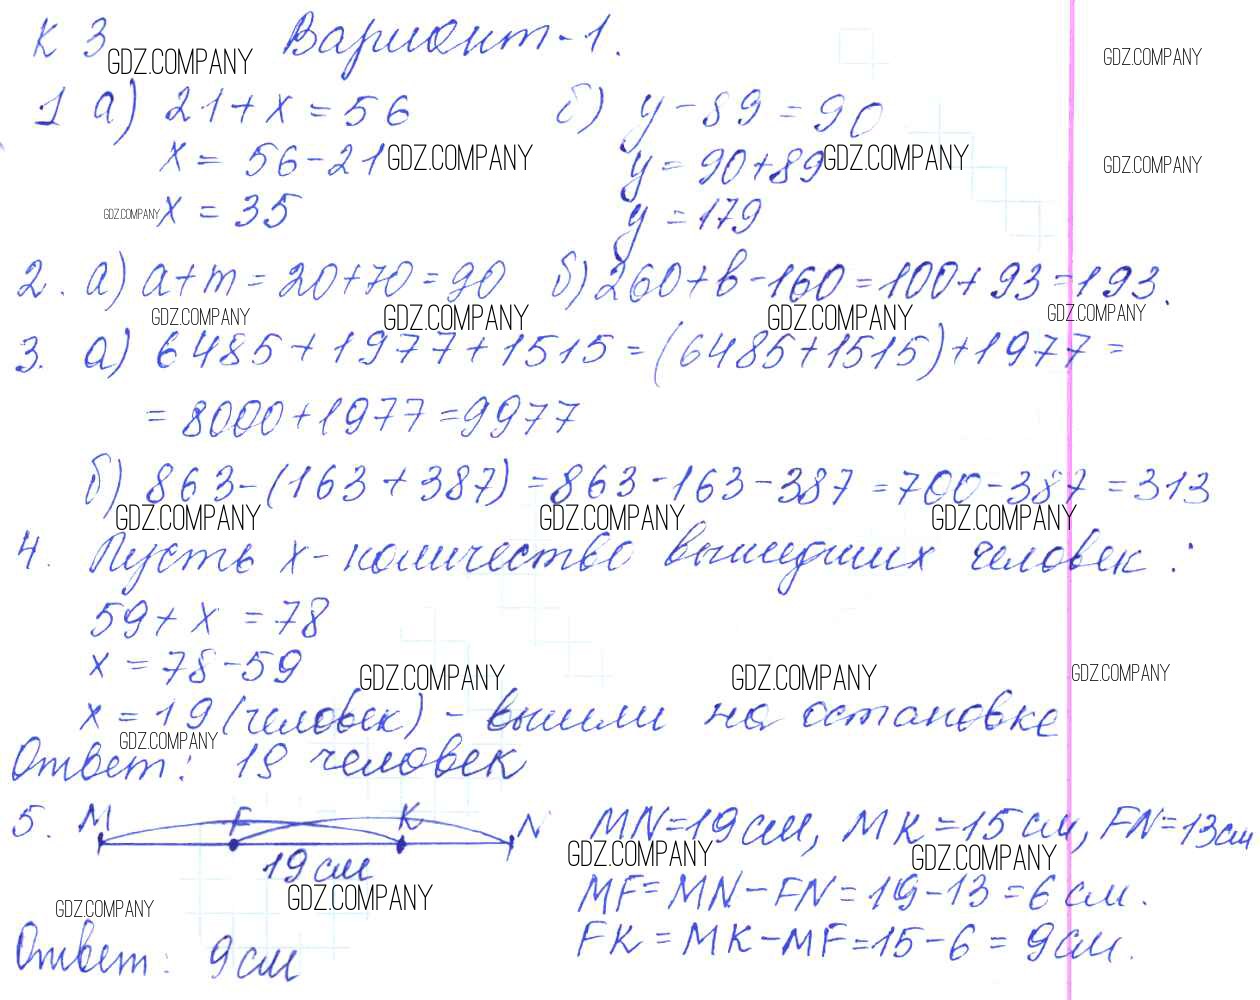 К 3 GDZ.COMPANY Вариант-1. GDZ.COMPANY
1 а) 21+x=56 б) y-89=90
x = 56-21 GDZ.COMPANY y = 90+89 GDZ.COMPANY GDZ.COMPANY
GDZ.COMPANY x = 35 y = 179
2. а) a+m=20+70=90 б) 260+b-160=100+93=193.
GDZ.COMPANY GDZ.COMPANY GDZ.COMPANY GDZ.COMPANY
3. а) 6485+1977+1515=(6485+1515)+1977=
= 8000+1977=9977
б) 863-(163+387)=863-163-387=700-387=313
GDZ.COMPANY GDZ.COMPANY GDZ.COMPANY
4. Пусть x-количество вышедших человек:
59+x=78
x=78-59
GDZ.COMPANY GDZ.COMPANY GDZ.COMPANY
x=19(человек)-вышли на остановке
GDZ.COMPANY
Ответ: 19 человек
5. M F K N MN=19см, MK=15см, FN=13см
19см GDZ.COMPANY GDZ.COMPANY
GDZ.COMPANY MF=MN-FN=19-13=6см.
GDZ.COMPANY FK=MK-MF=15-6=9см.
Ответ: 9см